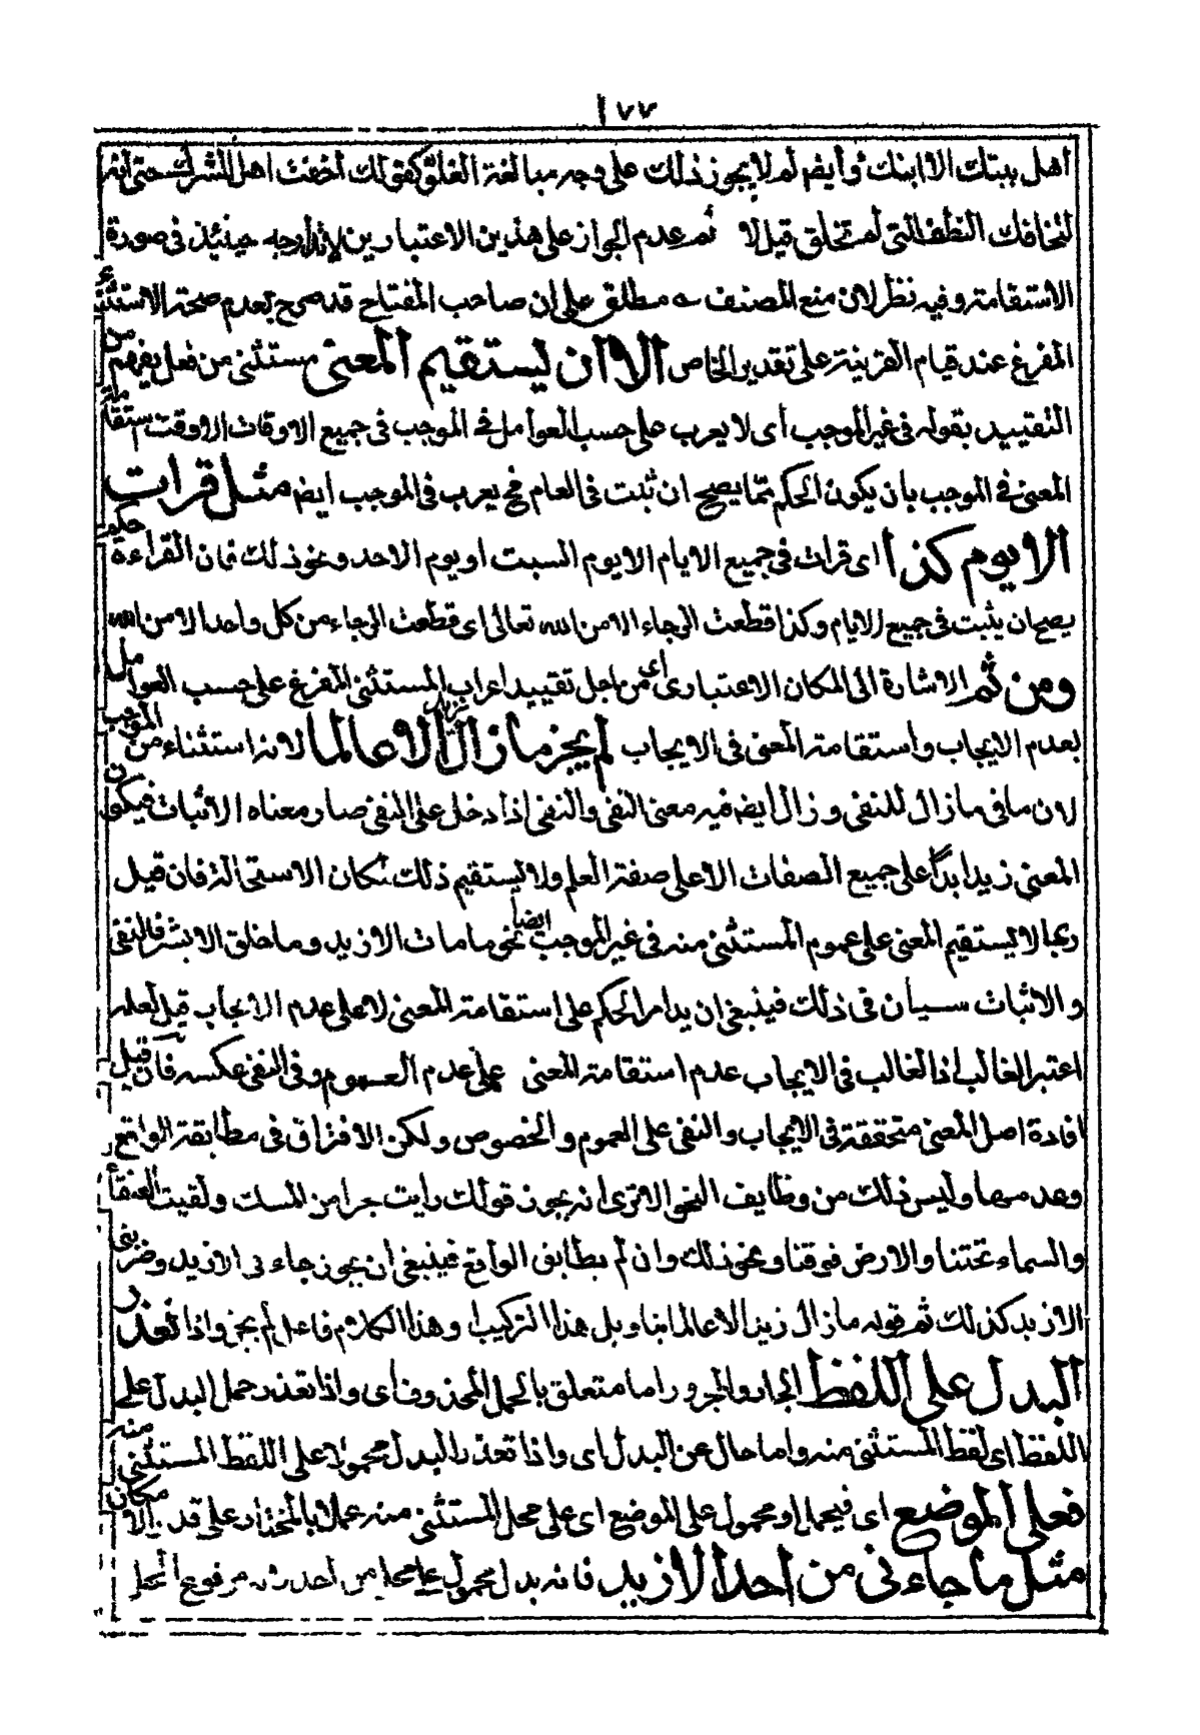 ١٧٧
اهل بيتك الا ابنك وأيضا لم لا يجوز ذلك على وجه مبالغة الغلو كقولك أخفت اهل الشرك حتى انه
لتخافك النطف التى لم تخلق قيل لا ثم عدم الجواز على هذين الاعتبارين لانه حينئذ فى صورة
الاستقامة وفيه نظر لان منع المصنف مطلق على ان صاحب المفتاح قد صرح بعدم صحة الاستثناء
المفرغ عند قيام القرينة على تقدير الخاص الا ان يستقيم المعنى مستثنى من فعل يفهم من
التقييد بقوله فى غير الموجب أى لا يعرب على حسب العوامل فى الموجب فى جميع الاوقات الا وقت استقامة
المعنى فى الموجب بان يكون الحكم مما يصح ان ثبت فى العام فح يعرب فى الموجب ايضا مثل قرات
الا يوم كذا اى قرات فى جميع الايام الا يوم السبت او يوم الاحد ونحو ذلك فان حكم القراءة
يصح ان يثبت فى جميع الايام وكذا قطعت الرجاء الا من الله تعالى اى قطعت الرجاء من كل واحد الا من الله
ومن ثم الاشارة الى المكان الاعتبارى اى من اجل تقييد اعراب المستثنى المفرغ على حسب العوامل
بعدم الايجاب واستقامة المعنى فى الايجاب لم يجز ما زال زيد الا عالما لانه استثناء من الموجب
لان ما فى ما زال للنفى و زال ايضا فيه معنى النفى والنفى اذا دخل على النفى صار معناه الاثبات فيكون
المعنى زيد ابدًا على جميع الصفات الا على صفة العلم ولا يستقيم ذلك لمكان الاستحالة فان قيل
ربما لا يستقيم المعنى على عموم المستثنى منه فى غير الموجب ايضا نحو ما مات الا زيد وما خلق الا بشر فالنفى
والاثبات سيان فى ذلك فينبغى ان يدار الحكم على استقامة المعنى لا على عدم الايجاب قيل لعله
اعتبر الغالب اذ الغالب فى الايجاب عدم استقامة المعنى على عدم العموم وفى النفى عكسه فان قيل
افادة اصل المعنى متحققة فى الايجاب والنفى على العموم والخصوص ولكن الافتراق فى مطابقة الواقع
وعدمها وليس ذلك من وظايف النحو الا ترى انه يجوز قولك رايت جرا من المسك ولقيت العنقاء
والسماء تحتنا والارض فوقنا ونحو ذلك وان لم يطابق الواقع فينبغى ان يجوز جاء نى الا زيد وضربنى
الا زيد كذلك ثم قوله ما زال زيد الا عالما بتاويل هذا التركيب او هذا الكلام فاعل لم يجز واذا تعذر
البدل على اللفظ الجار والمجرور اما متعلق بالحمل المحذوف أى واذا تعذر حمل البدل على
اللفظ اى لفظ المستثنى منه واما حال عن البدل اى واذا تعذر البدل محمولا على اللفظ المستثنى منه
فعلى الموضع اى فيحمل او محمول على الموضع اى على محل المستثنى منه عملا بالمختار على قدر الامكان
مثل ما جاء نى من احد الا زيد فانه بدل محمول على محل من احد مرفوع المحل